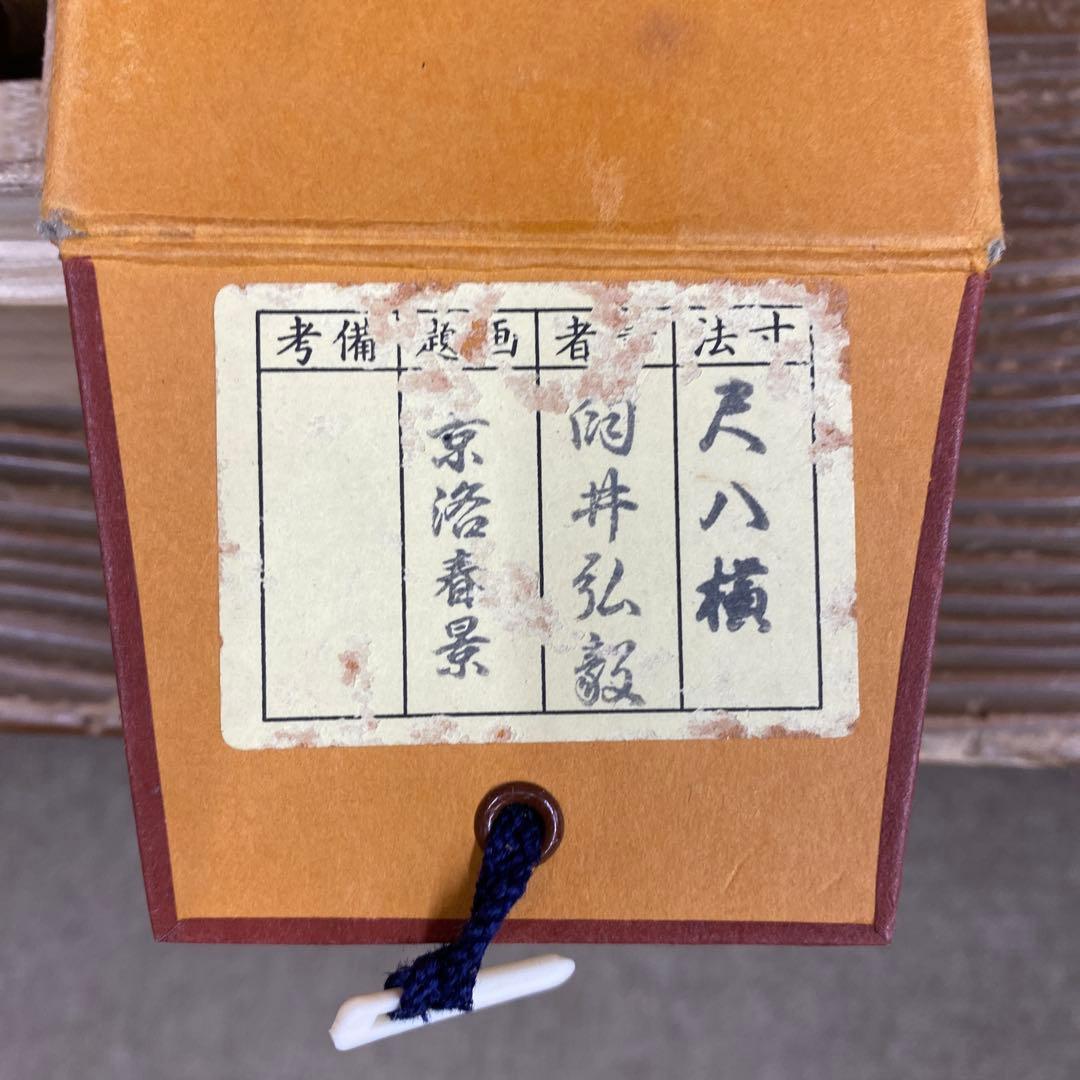 寸法
尺八横
者
井弘毅
画題
京洛春景
備考